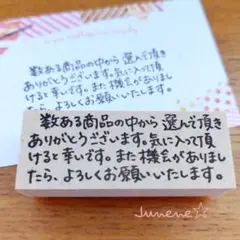 数ある商品の中から選んで頂き
ありがとうございます。気に入って頂
けると幸いです。また機会がありまし
たら、よろしくお願いいたします。
数ある商品の中から選んで頂き
ありがとうございます。気に入って頂
けると幸いです。また機会がありまし
たら、よろしくお願いいたします。
Junene☆